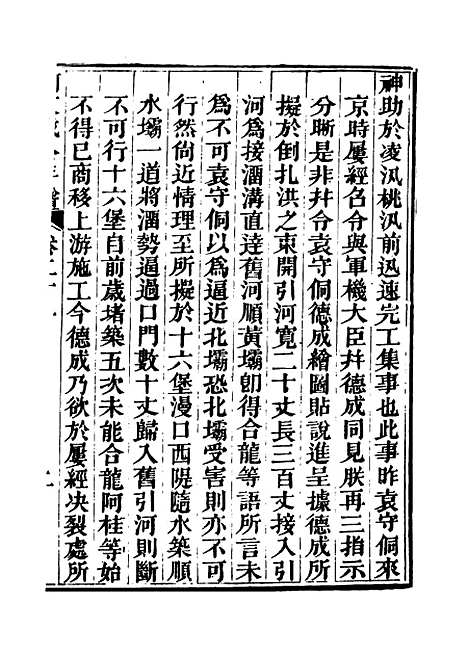 神助於凌汛桃汛前迅速完工集事也此事昨袁守侗來
京時屢經名令與軍機大臣幷德成同見朕再三指示
分晰是非幷令袁守侗德成繪圖貼說進呈據德成所
擬於倒扎洪之東開引河寬二十丈長三百丈接入引
河爲接溜溝直達舊河順黃壩卽得合龍等語所言未
爲不可袁守侗以爲逼近北壩恐北壩受害則亦不可
行然尙近情理至所擬於十六堡漫口西隄隨水築順
水壩一道將溜勢逼過口門數十丈歸入舊引河則斷
不可行十六堡自前歲堵築五次未能合龍阿桂等始
不得已商移上游施工今德成乃欲於屢經決裂處所